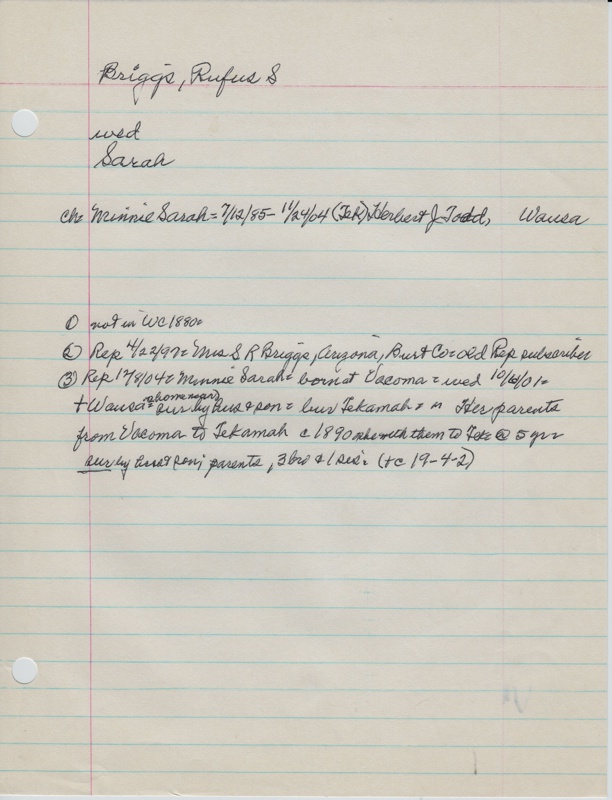 Briggs, Rufus S
wed
Sarah
ch: Minnie Sarah = 7/12/85 - 11/24/04 (Tek) Herbert J Todd, Wausa
① not in WC 1880=
② Rep 4/22/97= Mrs S R Briggs, Arizona, Burt Co = old Rep subscriber
③ Rep 12/8/04= Minnie Sarah = born at Vacoma = wed 10/16/01=
+ Wausa = @ home near = sur by hus & son = bur Tekamah = " Her parents
from Vacoma to Tekamah c 1890 with them to Tek @ 5 yrs
sur by hus & son; parents, 3 bro & 1 sis: (+c 19-4-2)